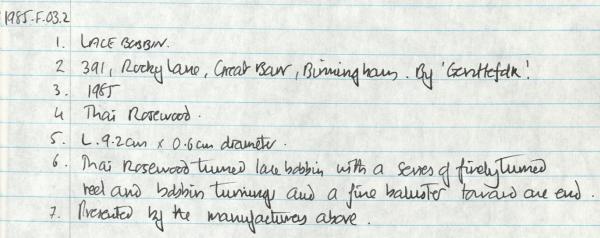 1985.F.03.2
1. LACE BOBBIN.
2 391, Rocky Lane, Great Barr, Birmingham. By 'Gentlefolk'.
3. 1985
4 Thai Rosewood.
5. L. 9.2cm x 0.6cm diameter.
6. Thai Rosewood turned lace bobbin with a series of finely turned
reel and bobbin turnings and a fine baluster toward one end.
7. Presented by the manufacturers above.